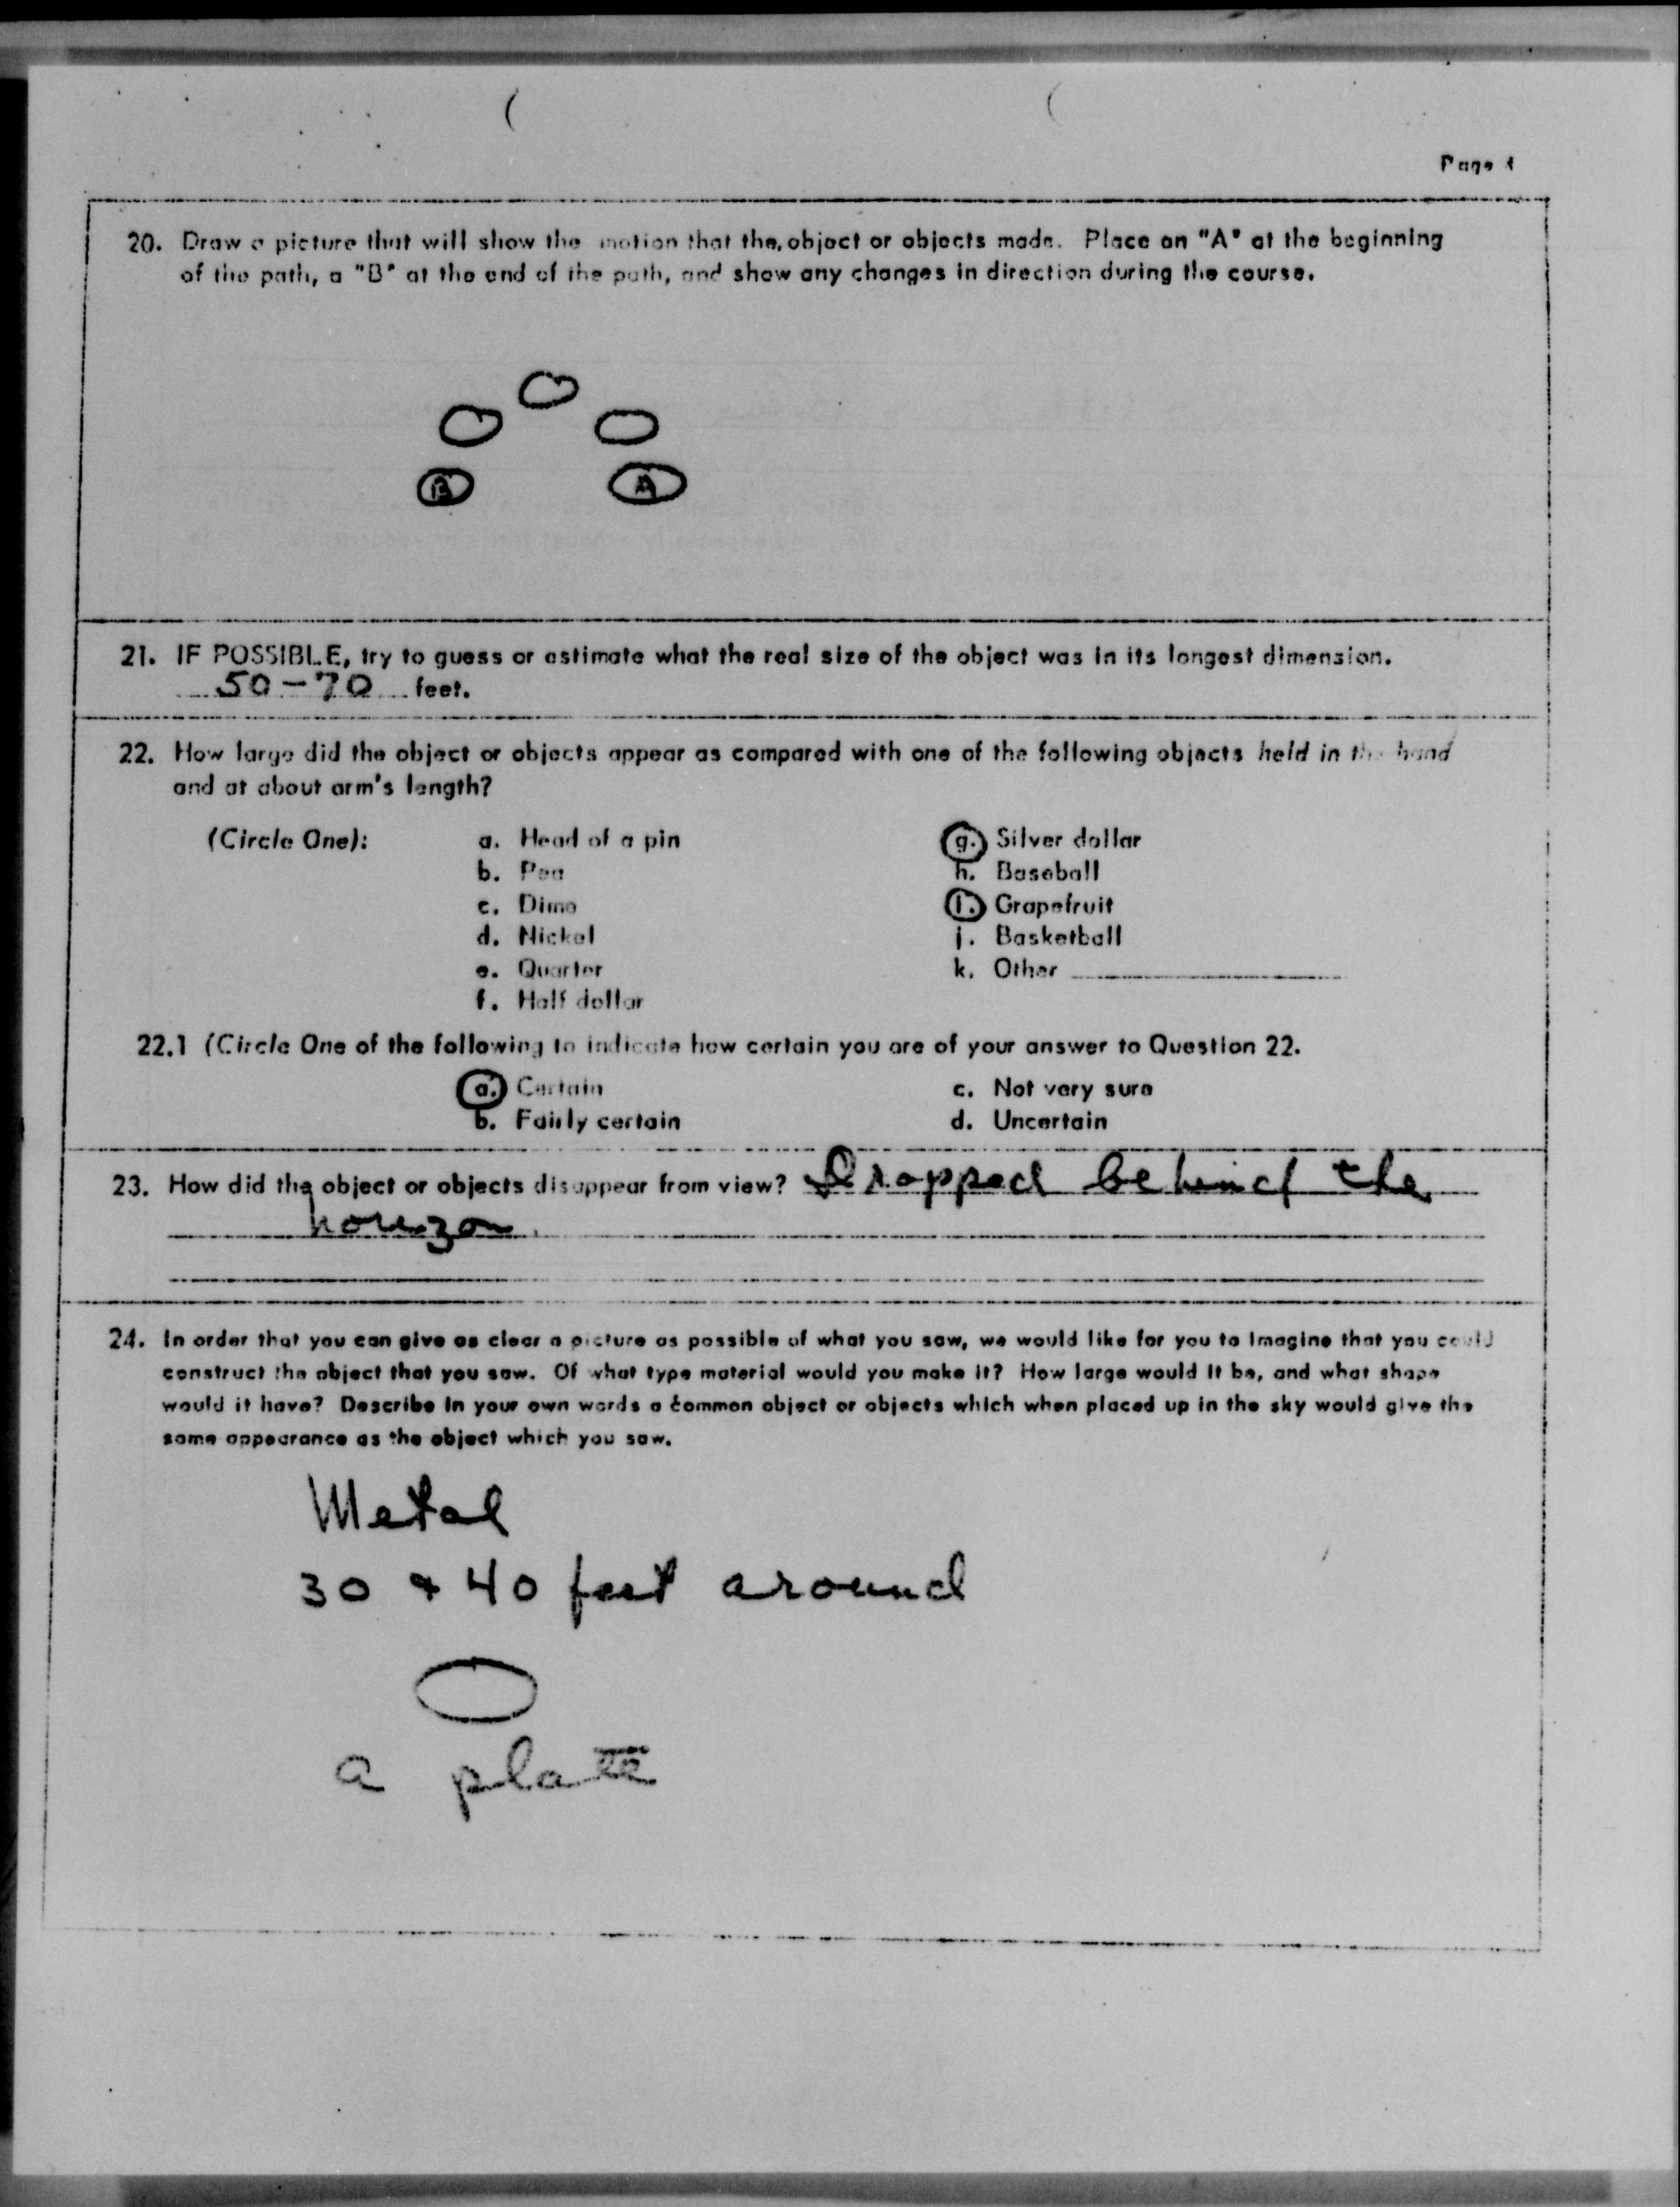 Page 4
20. Draw a picture that will show the motion that the object or objects made. Place an "A" at the beginning
of the path, a "B" at the end of the path, and show any changes in direction during the course.
B A
21. IF POSSIBLE, try to guess or estimate what the real size of the object was in its longest dimension.
50-70 feet.
22. How large did the object or objects appear as compared with one of the following objects held in the hand
and at about arm's length?
(Circle One): a. Head of a pin g. Silver dollar
b. Pea h. Baseball
c. Dime i. Grapefruit
d. Nickel j. Basketball
e. Quarter k. Other
f. Half dollar
22.1 (Circle One of the following to indicate how certain you are of your answer to Question 22.
a. Certain c. Not very sure
b. Fairly certain d. Uncertain
23. How did the object or objects disappear from view? Dropped behind the
horizon.
24. In order that you can give as clear a picture as possible of what you saw, we would like for you to imagine that you could
construct the object that you saw. Of what type material would you make it? How large would it be, and what shape
would it have? Describe in your own words a common object or objects which when placed up in the sky would give the
same appearance as the object which you saw.
Metal
30 & 40 feet around
a plate